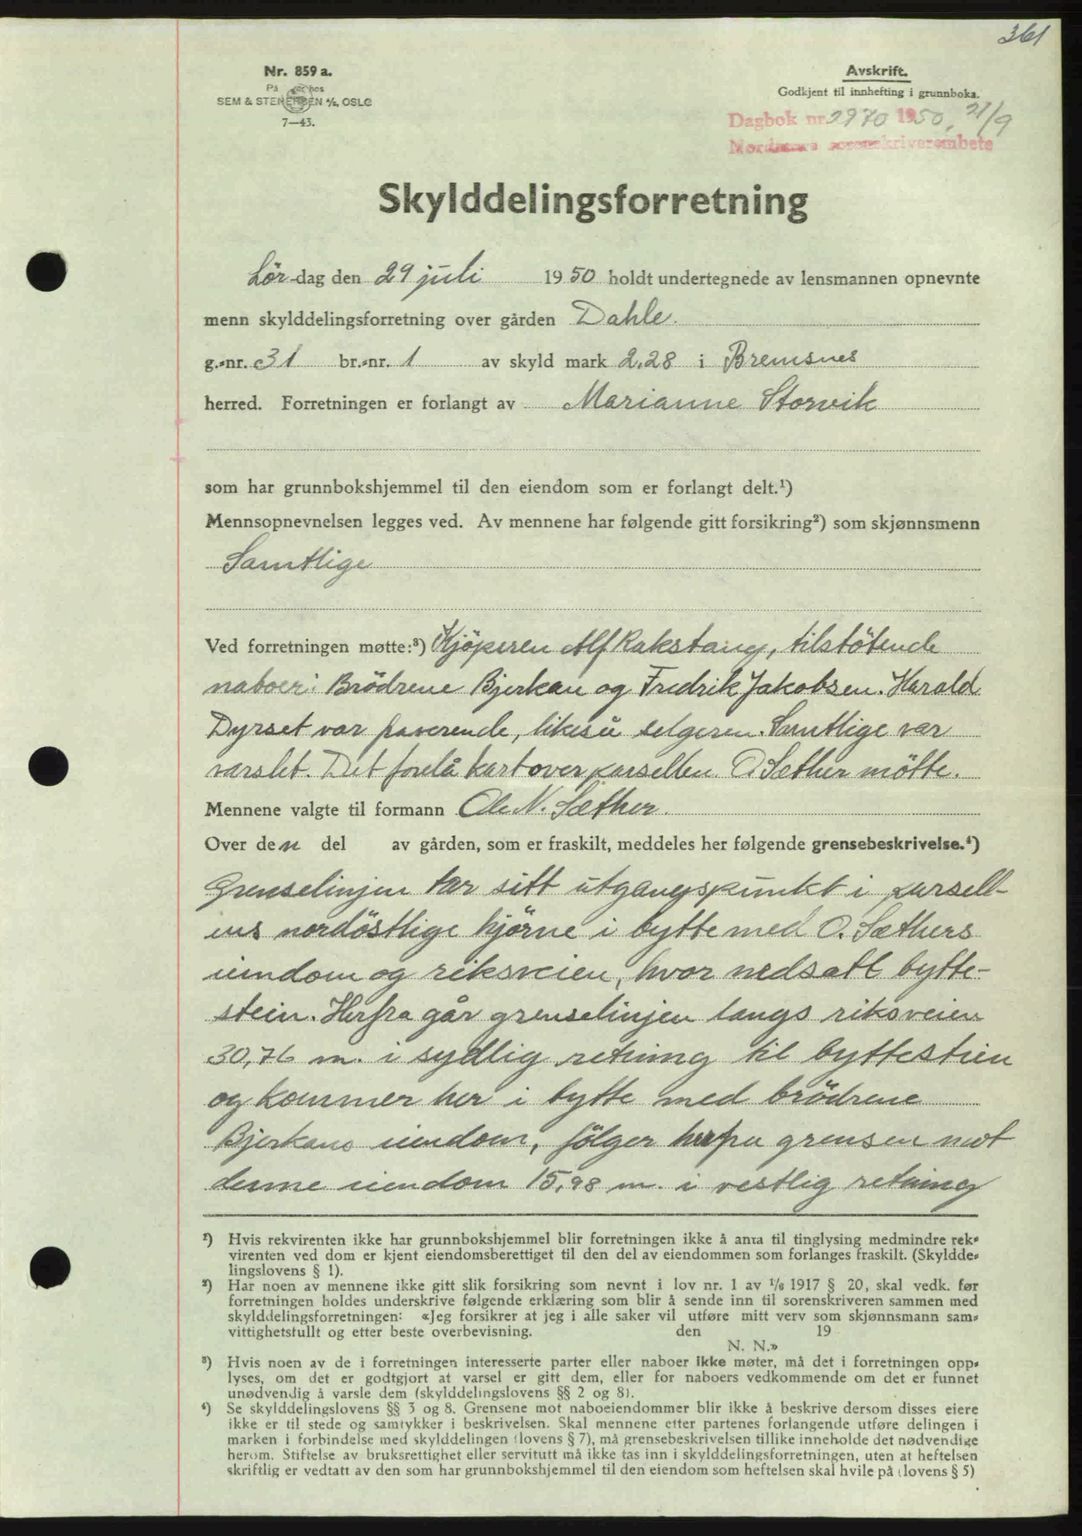 361
Nr. 859 a.
På hos
SEM & STENERSEN A/S, OSLO
7—43.
Avskrift.
Godkjent til innhefting i grunnboka.
Dagbok nr 2970 1950, 21/9
Nordmøre sorenskriverembete
Skylddelingsforretning
Lör-dag den 29 juli 1950 holdt undertegnede av lensmannen opnevnte
menn skylddelingsforretning over gården Dahle.
g.-nr. 31 br.-nr. 1 av skyld mark 2,28 i Bremsnes
herred. Forretningen er forlangt av Marianne Storvik
som har grunnbokshjemmel til den eiendom som er forlangt delt.¹)
Mennsopnevnelsen legges ved. Av mennene har følgende gitt forsikring²) som skjønnsmenn
Samtlige
Ved forretningen møtte:³) Kjöperen Alf Rakstang, tilstötende
naboer: Brödrene Bjerkan og Fredrik Jakobsen. Harald
Dyrset var fraverende, likeså selgeren. Samtlige var
varslet. Det forelå kart over parsellen. O. Sæther mötte.
Mennene valgte til formann Ole N. Sæther.
Over den del av gården, som er fraskilt, meddeles her følgende grensebeskrivelse.⁴)
Grenselinjen tar sitt utgangspunkt i parsell-
ens nordöstlige hjörne i bytte med O. Sæthers
eiendom og riksveien, hvor nedsatt bytte-
stein. Herfra går grenselinjen langs riksveien
30,76 m. i sydlig retning til byttestein
og kommer her i bytte med brödrene
Bjerkans eiendom, fölger herfra grensen mot
denne eiendom 15,98 m. i vestlig retning
¹) Hvis rekvirenten ikke har grunnbokshjemmel blir forretningen ikke å anta til tinglysing medmindre rek-
virenten ved dom er kjent eiendomsberettiget til den del av eiendommen som forlanges fraskilt. (Skyldde-
lingslovens § 1).
²) Har noen av mennene ikke gitt slik forsikring som nevnt i lov nr. 1 av ¹/₆ 1917 § 20, skal vedk. før
forretningen holdes underskrive følgende erklæring som blir å sende inn til sorenskriveren sammen med
skylddelingsforretningen: «Jeg forsikrer at jeg i alle saker vil utføre mitt verv som skjønnsmann sam-
vittighetsfullt og etter beste overbevisning. den 19
N. N.»
³) Hvis noen av de i forretningen interesserte parter eller naboer ikke møter, må det i forretningen opp-
lyses, om det er godtgjort at varsel er gitt dem, eller for naboers vedkommende om det er funnet
unødvendig å varsle dem (skylddelingslovens §§ 2 og 8).
⁴) Se skylddelingslovens §§ 3 og 8. Grensene mot naboeiendommer blir ikke å beskrive dersom disses eiere
ikke er til stede og samtykker i beskrivelsen. Skal mennene etter partenes forlangende utføre delingen i
marken i forbindelse med skylddelingen (lovens § 7), må grensebeskrivelsen tillike inneholde det nødvendige
herom. Stiftelse av bruksrettighet eller servitutt må ikke tas inn i skylddelingsforretningen, uten at heftelsen
skriftlig er vedtatt av den som har grunnbokshjemmel til den eiendom som heftelsen skal hvile på (lovens § 5)